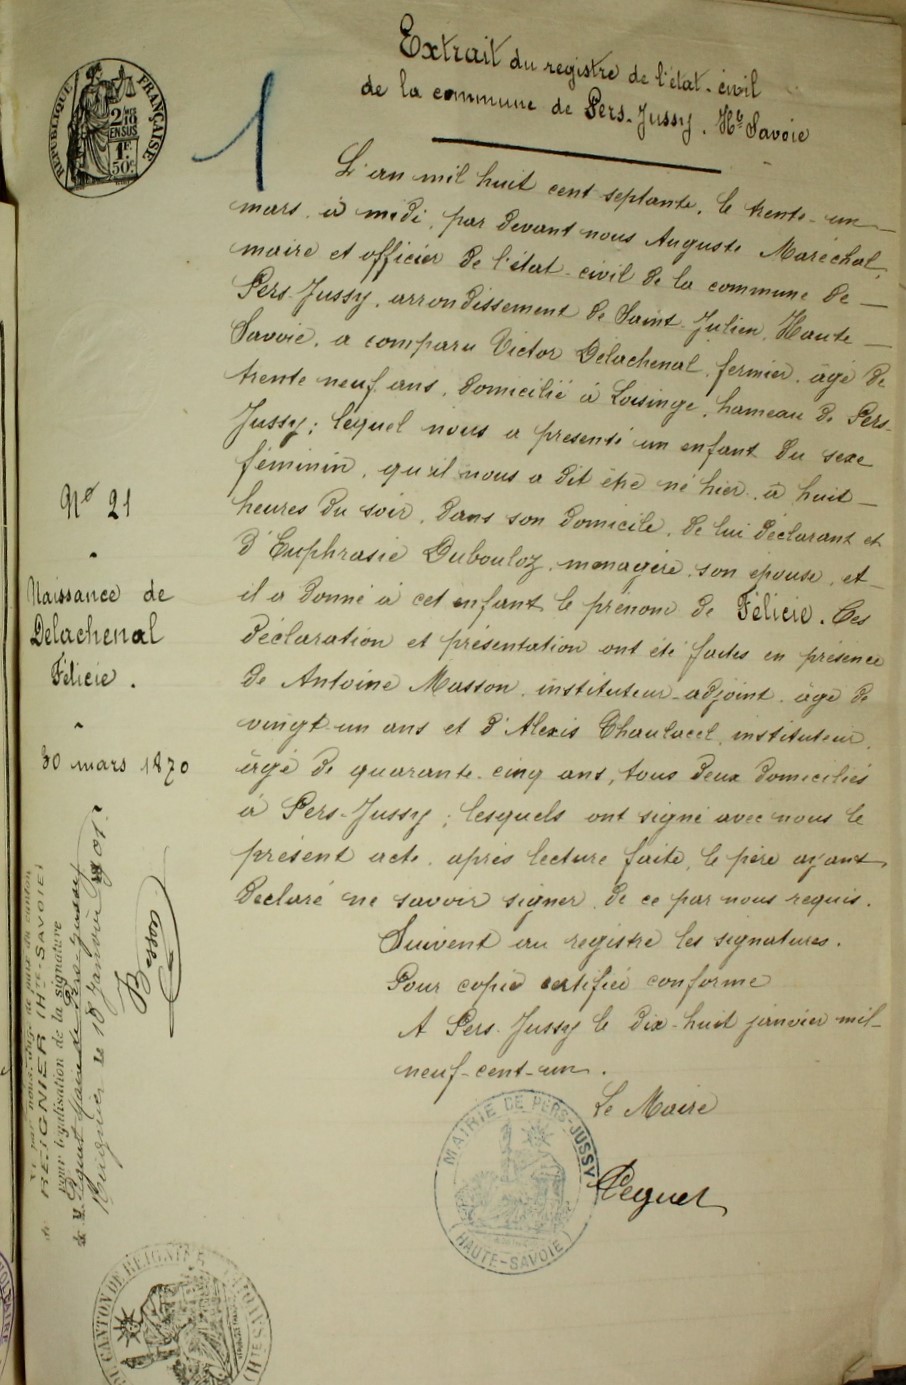 Extrait du registre de l'état-civil
de la commune de Pers-Jussy. Hte Savoie
RÉPUBLIQUE FRANÇAISE
EN SUS
1F
50c
1
L'an mil huit cent septante, le trente-un
mars, à midi, par devant nous Auguste Maréchal,
maire et officier de l'état-civil de la commune de
Pers-Jussy, arrondissement de Saint-Julien, Haute
Savoie, a comparu Victor Delachenal, fermier, âgé de
trente neuf ans, domicilié à Loisinge, hameau de Pers-
Jussy; lequel nous a présenté un enfant du sexe
féminin, qu'il nous a dit être né hier, à huit
heures du soir, dans son domicile, de lui déclarant et
d'Euphrasie Dubouloz, ménagère, son épouse, et
il a donné à cet enfant le prénom de Félicie. Ces
déclaration et présentation ont été faites en présence
de Antoine Masson, instituteur-adjoint, âgé de
vingt-un ans et d'Alexis instituteur,
âgé de quarante-cinq ans, tous deux domiciliés
à Pers-Jussy; lesquels ont signé avec nous le
présent acte, après lecture faite, le père ayant
déclaré ne savoir signer, de ce par nous requis.
Suivent au registre les signatures.
Pour copie certifiée conforme
A Pers-Jussy le dix-huit janvier mil-
neuf-cent-un.
Le Maire
Pequet
MAIRIE DE PERS-JUSSY
(HAUTE-SAVOIE)
No 21
Naissance de
Delachenal
Félicie.
30 mars 1870
Vu par nous, Juge de paix du canton
de REIGNIER (HTE-SAVOIE)
pour légalisation de la signature
de M. Pequet Maire de Pers-Jussy
Reignier le 18 janvier 1901
DU CANTON DE REIGNIER
(HTE SAVOIE)